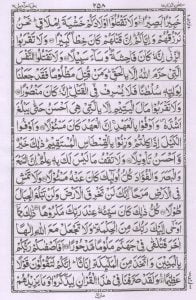 ٢٥٨
خَبِيْرًا بَصِيْرًا وَلَا تَقْتُلُوْٓا اَوْلَادَكُمْ خَشْيَةَ اِمْلَاقٍ نَحْنُ
نَرْزُقُهُمْ وَاِيَّاكُمْ اِنَّ قَتْلَهُمْ كَانَ خِطْاً كَبِيْرًا وَلَا تَقْرَبُوا
الزِّنٰٓى اِنَّهٗ كَانَ فَاحِشَةً وَسَآءَ سَبِيْلًا وَلَا تَقْتُلُوا النَّفْسَ
الَّتِيْ حَرَّمَ اللّٰهُ اِلَّا بِالْحَقِّ وَمَنْ قُتِلَ مَظْلُوْمًا فَقَدْ جَعَلْنَا
لِوَلِيِّهٖ سُلْطٰنًا فَلَا يُسْرِفْ فِّي الْقَتْلِ اِنَّهٗ كَانَ مَنْصُوْرًا
وَلَا تَقْرَبُوْا مَالَ الْيَتِيْمِ اِلَّا بِالَّتِيْ هِيَ اَحْسَنُ حَتّٰى يَبْلُغَ
اَشُدَّهٗ وَاَوْفُوْا بِالْعَهْدِ اِنَّ الْعَهْدَ كَانَ مَسْـُٔوْلًا وَاَوْفُوا
الْكَيْلَ اِذَا كِلْتُمْ وَزِنُوْا بِالْقِسْطَاسِ الْمُسْتَقِيْمِ ذٰلِكَ خَيْرٌ
وَّاَحْسَنُ تَاْوِيْلًا وَلَا تَقْفُ مَا لَيْسَ لَكَ بِهٖ عِلْمٌ اِنَّ
السَّمْعَ وَالْبَصَرَ وَالْفُؤَادَ كُلُّ اُولٰٓئِكَ كَانَ عَنْهُ مَسْـُٔوْلًا وَلَا تَمْشِ
فِي الْاَرْضِ مَرَحًا اِنَّكَ لَنْ تَخْرِقَ الْاَرْضَ وَلَنْ تَبْلُغَ الْجِبَالَ
طُوْلًا كُلُّ ذٰلِكَ كَانَ سَيِّئُهٗ عِنْدَ رَبِّكَ مَكْرُوْهًا ذٰلِكَ مِمَّآ
اَوْحٰٓى اِلَيْكَ رَبُّكَ مِنَ الْحِكْمَةِ وَلَا تَجْعَلْ مَعَ اللّٰهِ اِلٰهًا
اٰخَرَ فَتُلْقٰى فِيْ جَهَنَّمَ مَلُوْمًا مَّدْحُوْرًا اَفَاَصْفٰىكُمْ رَبُّكُمْ
بِالْبَنِيْنَ وَاتَّخَذَ مِنَ الْمَلٰٓئِكَةِ اِنَاثًا اِنَّكُمْ لَتَقُوْلُوْنَ قَوْلًا
عَظِيْمًا وَلَقَدْ صَرَّفْنَا فِيْ هٰذَا الْقُرْاٰنِ لِيَذَّكَّرُوْا وَمَا يَزِيْدُهُمْ